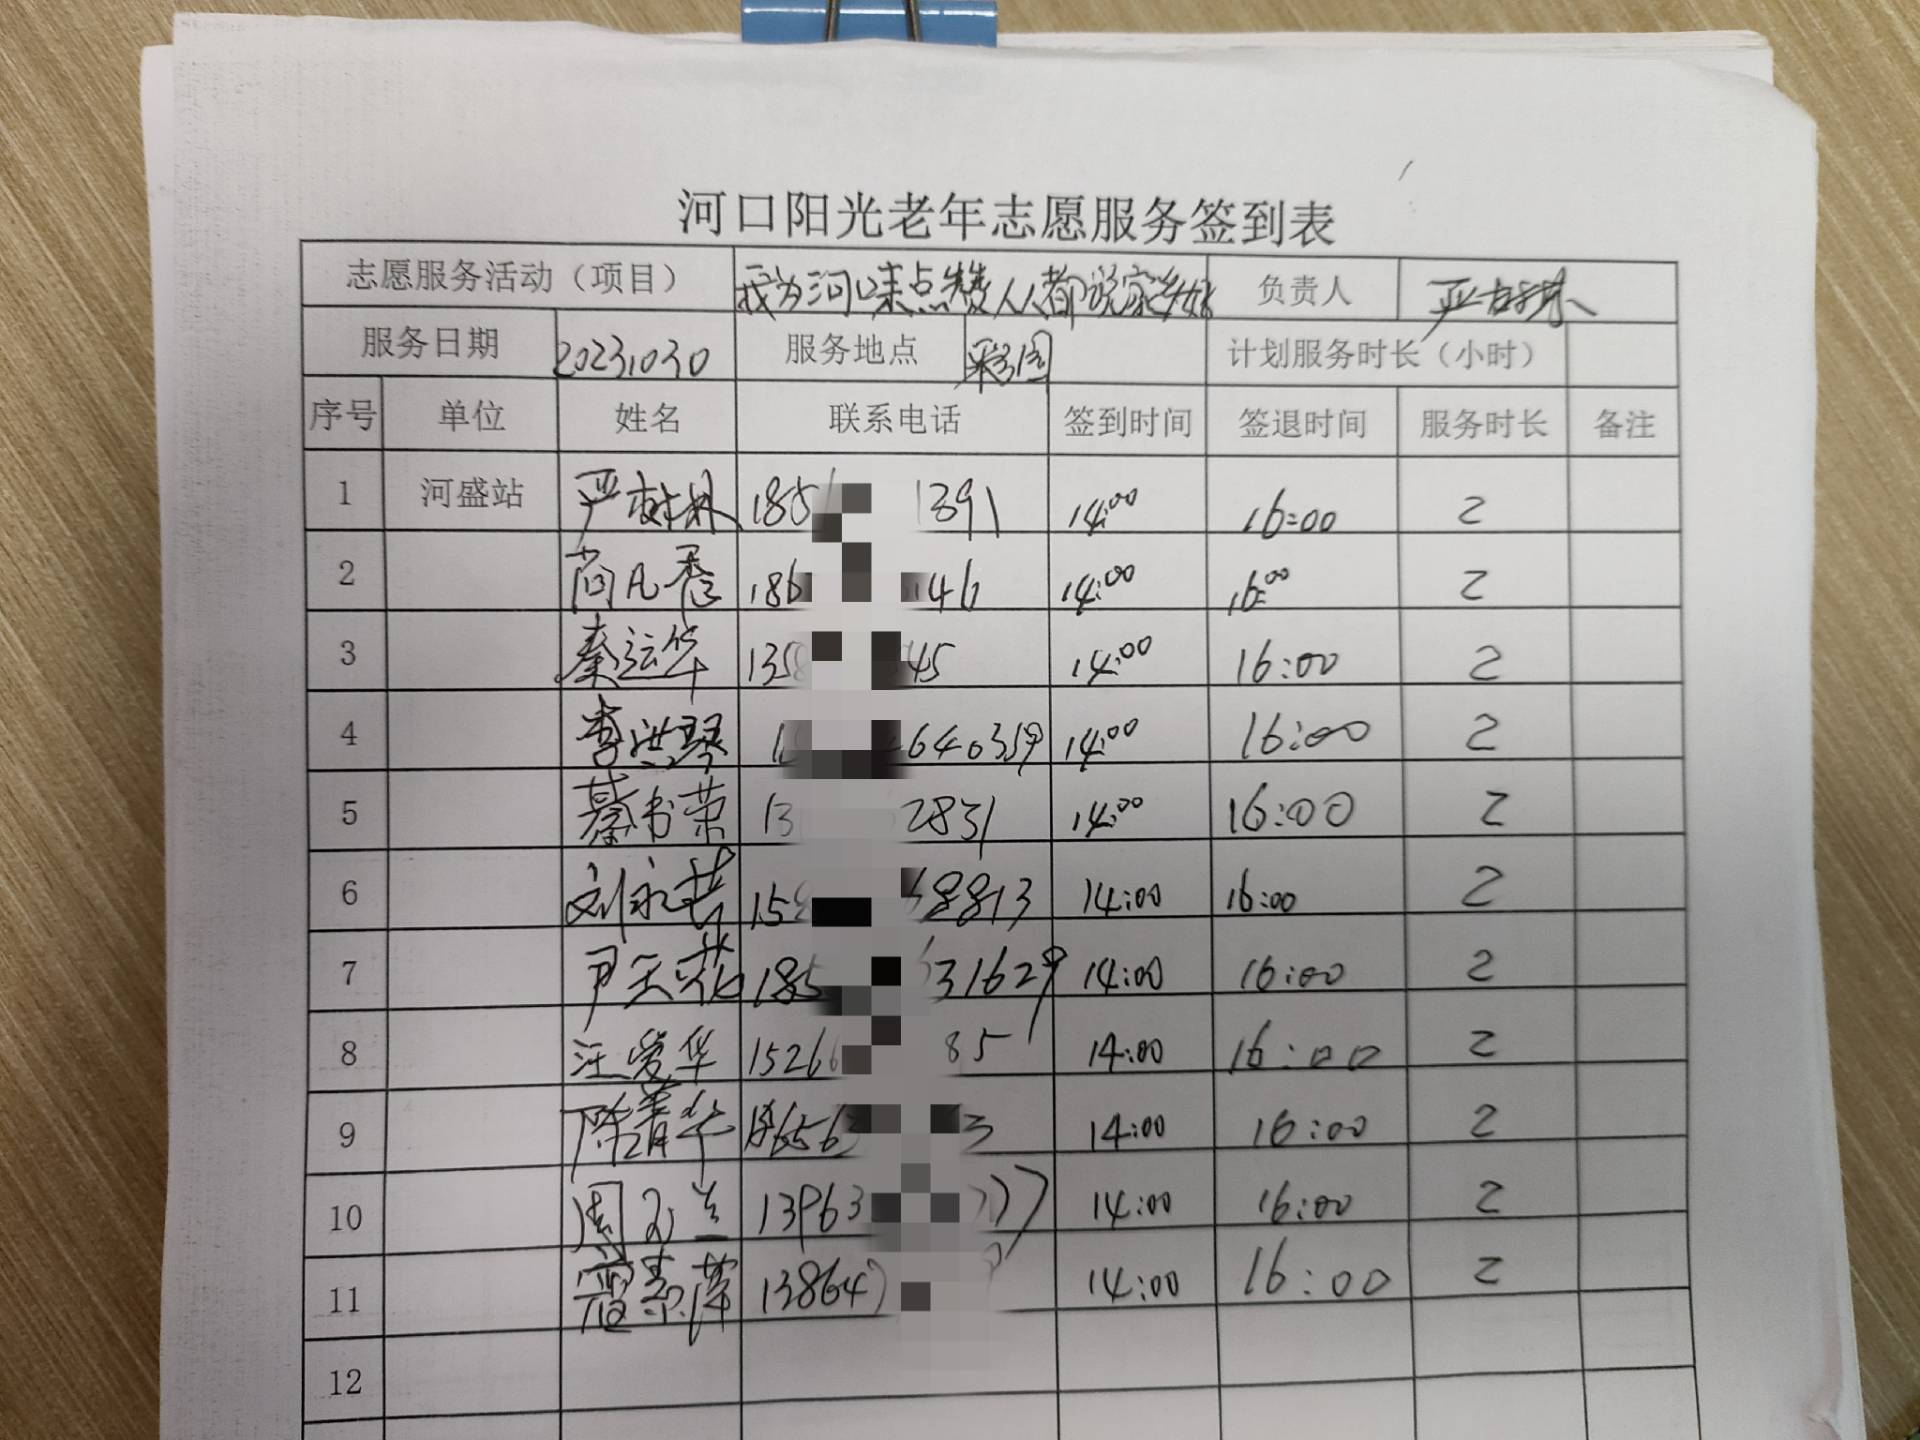 河口阳光老年志愿服务签到表
志愿服务活动（项目） 我为河口来点赞人人都说家乡好 负责人 严树林
服务日期 20231030 服务地点 计划服务时长（小时）
序号 单位 姓名 联系电话 签到时间 签退时间 服务时长 备注
1 河盛站 严树林 185 1391 14:00 16:00 2
2 凡香 186 146 14:00 16:00 2
3 秦运华 135 45 14:00 16:00 2
4 李洪琴 640359 14:00 16:00 2
5 綦书荣 13 2831 14:00 16:00 2
6 刘永芹 15 8813 14:00 16:00 2
7 尹玉花 185 31629 14:00 16:00 2
8 汪爱华 1526 85 14:00 16:00 2
9 陈青华 3 14:00 16:00 2
10 周玉兰 13963 77 14:00 16:00 2
11 13864 14:00 16:00 2
12